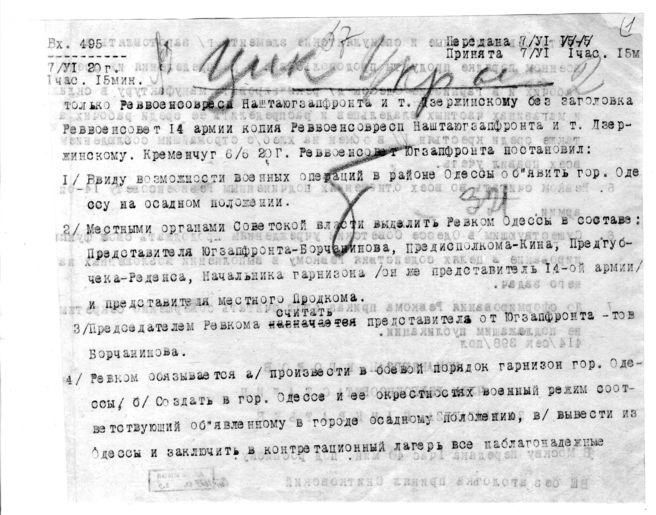 Вх. 495
37
1
Передана 7/VI
Принята 7/VI 1час. 15м
7/VI 20г.
1час. 15мин.
Цик Укра
2
только Реввоенсовресп Наштаюгзапфронта и т. Дзержинскому без заголовка
Реввоенсовет 14 армии копия Реввоенсовресп Наштаюгзапфронта и т. Дзер-
жинскому. Кременчуг 6/6 20г. Реввоенсовет Югзапфронта постановил:
1/ Ввиду возможности военных операций в районе Одессы об"явить гор. Оде
ссу на осадном положении.
2/ Местными органами Советской власти выделить Ревком Одессы в составе:
Представителя Югзапфронта-Борчанинова, Предисполкома-Кина, Предгуб-
чека-Реденса, Начальника гарнизона /он же представитель 14-ой армии/
и представителя местного Продкома.
считать
3/Председателем Ревкома назначается представителя от Югзапфронта -тов
Борчанинова.
4/ Ревком обязывается а/ произвести в боевой порядок гарнизон гор. Оде-
ссы, б/ Создать в гор. Одессе и ее окрестностях военный режим соот-
ветствующий об"явленному в городе осадному положению, в/ вывести из
Одессы и заключить в контретационный лагерь все наблагонадежные